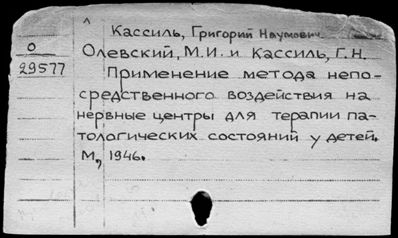 Кассиль, Григорий Наумович.
О
29577
Олевский, М.И. и Кассиль, Г.Н.
Применение метода непо-
средственного воздействия на
нервные центры для терапии па-
тологических состояний у детей.
М, 1946.